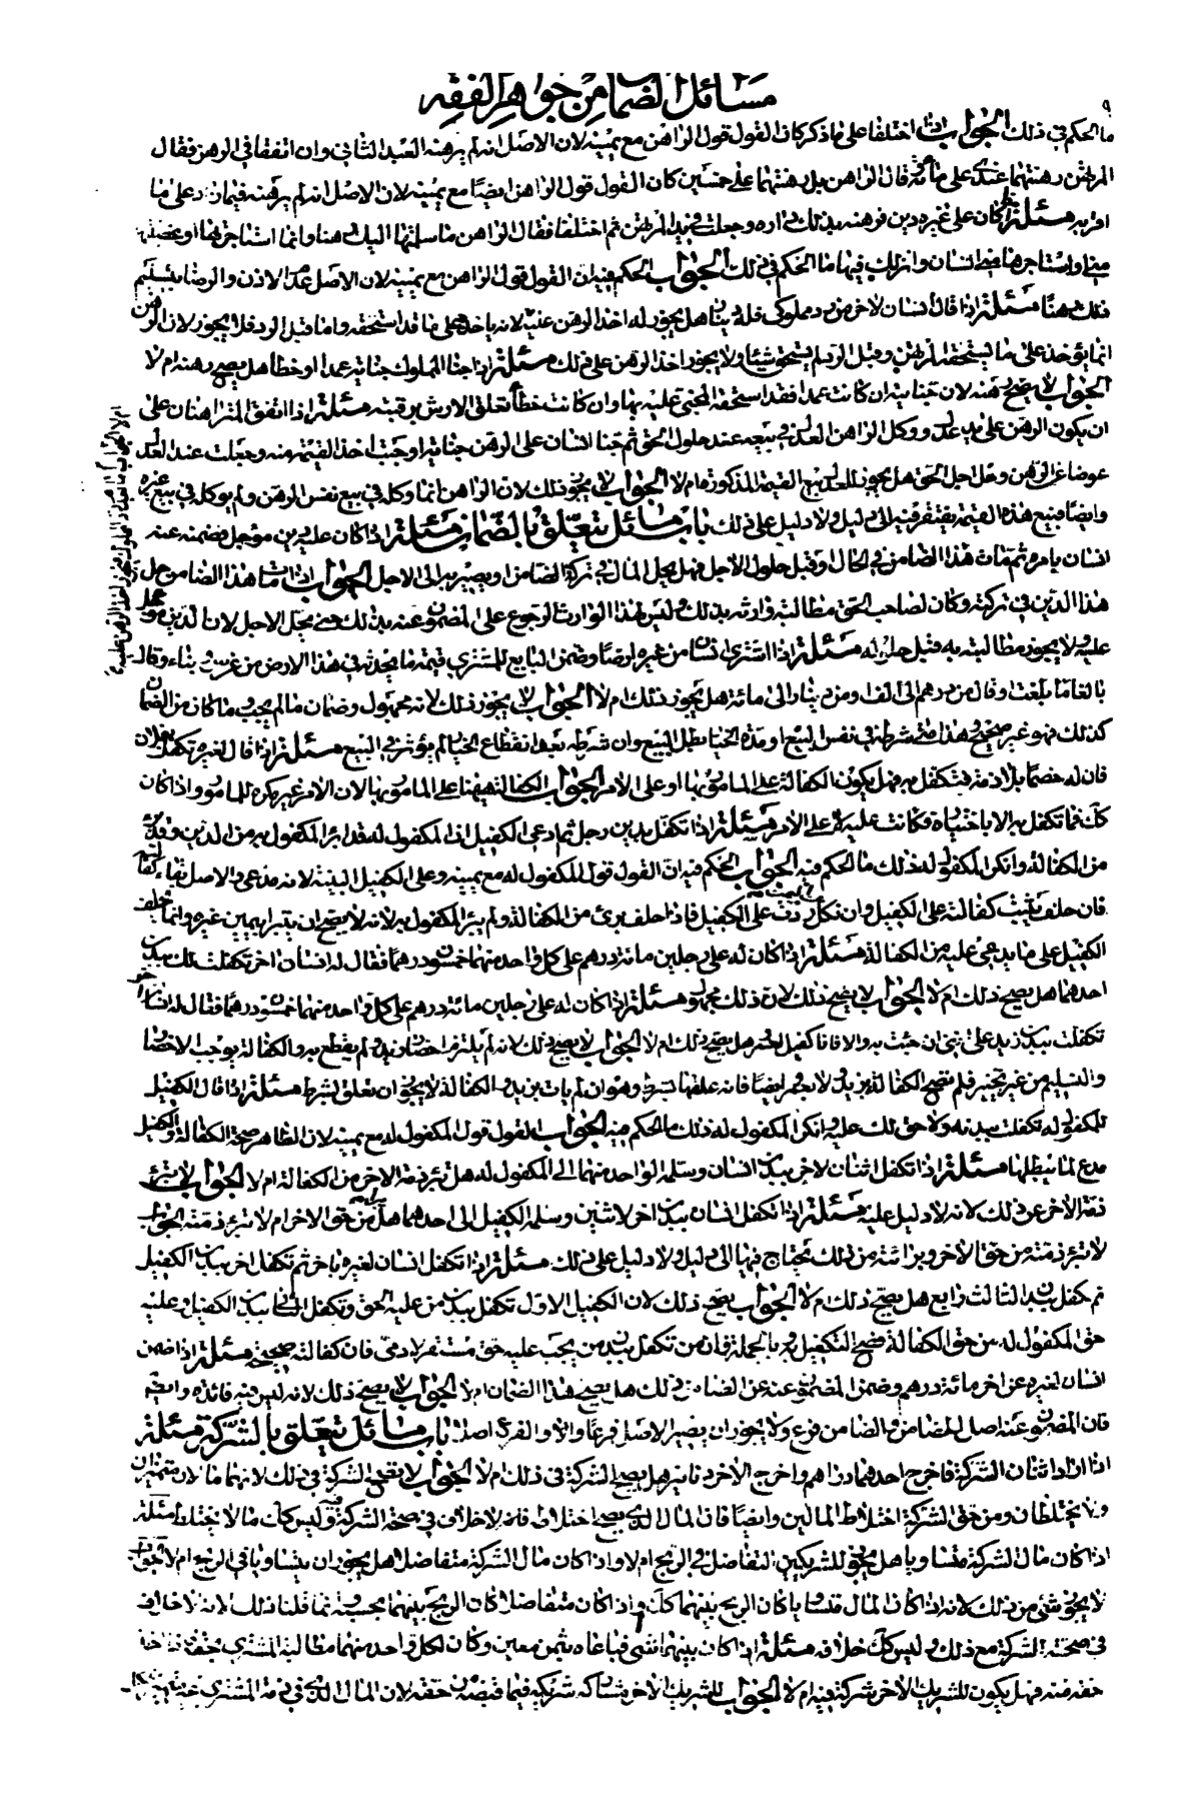 مسائل الضمان من جواهر الفقه
٩
ما الحكم في ذلك الجواب اذا اختلفا على ما ذكر كان القول قول الراهن مع يمينه لان الاصل انه لم يرهنه العبد الثاني وان اتفقا في الرهن فقال
المرتهن رهنتهما عندي على مائة قال الراهن بل رهنتهما على خمسين كان القول قول الراهن ايضا مع يمينه لان الاصل انه لم يرهنه فيما زاد على ما
اقر به مسئلة اذا كان على غيره دين فرهنه بذلك داره وجعلت في يد المرتهن ثم اختلفا فقال الراهن ما سلمتها اليك رهنا وانما استاجرتها او غصبتها
مني او استاجرها مني انسان وانزلك فيها ما الحكم في ذلك الجواب الحكم فيه ان القول قول الراهن مع يمينه لان الاصل عدم الاذن والرضا بتسليم
ذلك رهنا مسئلة اذا قال انسان لاخر من رد مملوكي فله دينار هل يجوز له اخذ الرهن عليه لانه ياخذه على ما قد استحقه واما قبل الرد فلا يجوز لان الرهن
انما يؤخذ على ما يستحقه المرتهن وقبل الرد لم يستحق شيئا ولا يجوز اخذ الرهن على ذلك مسئلة اذا جنا المملوك جناية عمدا او خطأ هل يصح رهنه ام لا
الجواب لا يصح رهنه لان جنايته ان كانت عمدا فقد استحقه المجنى عليه بها وان كانت خطأ تعلق الارش برقبته مسئلة اذا اتفق المتراهنان على
ان يكون الرهن على يد عدل ووكل الراهن العدل في بيعه عند حلول الحق ثم جنا انسان على الرهن جناية اوجبت اخذ القيمة منه وجعلت عند العدل
عوضا عن الرهن وحل اجل الحق هل يجوز للعدل بيع القيمة المذكورة ام لا الجواب لا يجوز ذلك لان الراهن انما وكله في بيع نفس الرهن ولم يوكله في بيع غيره
وايضا فبيع هذه القيمة يفتقر فيه الى دليل ولا دليل على ذلك باب مسائل تتعلق بالضمان مسئلة اذا كان عليه دين مؤجل فضمنه عنه
انسان بامره ثم مات هذا الضامن في الحال او قبل حلول الاجل فهل يحل المال في تركة الضامن ويصير به الى الاجل الجواب اذا مات هذا الضامن حل
هذا الدين في تركته وكان لصاحب الحق مطالبة وارثه بذلك وليس لهذا الوارث الرجوع على المضمون عنه بذلك حتى يحل الاجل لان الدين مؤجل
عليه ولا يجوز مطالبته به قبل حلوله مسئلة اذا اشترى انسان من غيره ارضا وضمن البايع للمشتري قيمة ما يحدثه في هذا الارض من غرس وبناء وقال
بالغا ما بلغت او قال من درهم الى الف او من دينار الى مائة هل يجوز ذلك ام لا الجواب لا يجوز ذلك لانه مجهول وضمان ما لم يجب وما كان من الضمان
كذلك فهو غير صحيح هذا متى شرطه في نفس البيع او مدة الخيار بطل البيع وان شرطه بعد انقطاع الخيار لم يؤثر في البيع مسئلة اذا قال لغيره تكفل بفلان
فان له خصما بلازمه فتكفل به فهل يكون الكفالة على المامور بها او على الامر الجواب الكفالة هيهنا على المامور بها لان الامر غير مكره للمامور واذا كان
كك فما تكفل به الا باختياره فكانت عليه لا على الامر مسئلة اذا تكفل ببدن رجل ثم ادعى الكفيل ان المكفول له قد ابرء المكفول به من الدين وقد برئ
من الكفالة وانكر المكفول له ذلك ما الحكم فيه الجواب الحكم فيه ان القول قول المكفول له مع يمينه وعلى الكفيل البينة لانه مدعي والاصل بقاء كفالته
فان حلف يثبت كفالته على الكفيل وان نكل ردت على الكفيل فاذا حلف برئ من الكفالة ولم يبرء المكفول به لانه لا يصح ان يتبرا بيمين غيره وانما حلف
الكفيل على ما يدعى عليه من الكفالة مسئلة اذا كان له على رجلين مائة درهم على كل واحد منهما خمسون درهما فقال له انسان اخر تكفلت لك ببدن
احدهما هل يصح ذلك ام لا الجواب لا يصح ذلك لان ذلك مجهول مسئلة اذا كان له على رجلين مائة درهم على كل واحد منهما خمسون درهما فقال له انسان اخر
تكفلت ببدن زيد على انني ان جئت به والا فانا كفيل لعمرو هل يصح ذلك ام لا الجواب لا يصح ذلك لانه لم يلتزم احضار زيد ولم يقطع به والكفالة يوجب الاحضار
والتسليم من غير تخيير فلم تصح الكفالة بزيد ولا بعمرو ايضا فانه علقها بشرط وهو ان لم يات بزيد والكفالة لا يجوز ان تعلق بشرط مسئلة اذا قال الكفيل
للمكفول له تكفلت ببدنه ولا حق لك عليه وانكر المكفول له ذلك ما الحكم فيه الجواب القول قول المكفول له مع يمينه لان الظاهر صحة الكفالة والكفيل
مدع لما يبطلها مسئلة اذا تكفل اثنان لاخر ببدن انسان وسلمه الواحد منهما الى المكفول له هل تبرء ذمة الاخر من الكفالة ام لا الجواب لا تبرء
ذمة الاخر عن ذلك لانه لا دليل عليه مسئلة اذا تكفل انسان ببدن اخر لاثنين وسلمه الكفيل الى احدهما هل يبرء من حق الاخر ام لا تبرء ذمته الجواب
لا تبرء ذمته من حق الاخر وبرائته من ذلك يحتاج فيها الى دليل ولا دليل على ذلك مسئلة اذا تكفل انسان لغيره باخر ثم تكفل اخر ببدن الكفيل
ثم كفل ببدن الثالث رابع هل يصح ذلك ام لا الجواب يصح ذلك لان الكفيل الاول تكفل ببدن من عليه الحق وتكفل الثاني ببدن الكفيل وعليه
حق المكفول له من حق الكفالة فصح التكفيل به وبالجملة فان من تكفل ببدن من يجب عليه حق مستقر لادمى فان كفالته صحيحة مسئلة اذا ضمن
انسان لغيره عن اخر مائة درهم وضمن المضمون عنه عن الضامن ذلك هل يصح هذا الضمان ام لا الجواب لا يصح ذلك لانه ليس فيه فائدة وايضا
فان المضمون عنه اصل للضامن والضامن فرع ولا يجوز ان يصير الاصل فرعا والفرع اصلا باب مسائل تتعلق بالشركة مسئلة
اذا اراد اثنان الشركة فاخرج احدهما دراهم واخرج الاخر دنانير هل يصح الشركة في ذلك ام لا الجواب لا يصح الشركة في ذلك لانهما مالان متميزان
ولا يختلطان ومن حق الشركة اختلاط المالين وايضا فان المال الذي يصح اختلاطه فانه لا خلاف في صحة الشركة فيه وليس كك ما لا يختلط مسئلة
اذا كان مال الشركة متساويا هل يجوز للشريكين التفاضل في الربح ام لا واذا كان مال الشركة متفاضلا هل يجوز ان يتساويا في الربح ام لا الجواب
لا يجوز شئ من ذلك لانه اذا كان المال متساويا كان الربح بينهما كك واذا كان متفاضلا كان الربح بينهما بحسبه وانما قلنا ذلك لانه لا خلاف
في صحة الشركة مع ذلك وليس كك خلافه مسئلة اذا كان بينهما شئ فباعاه بثمن معين وكان لكل واحد منهما مطالبة المشتري بحقه فاخذ
حقه منه فهل يكون للشريك الاخر شركة فيه ام لا الجواب للشريك الاخر مشاركة شريكه فيما قبضه من حقه لان المال الذي في ذمة المشتري